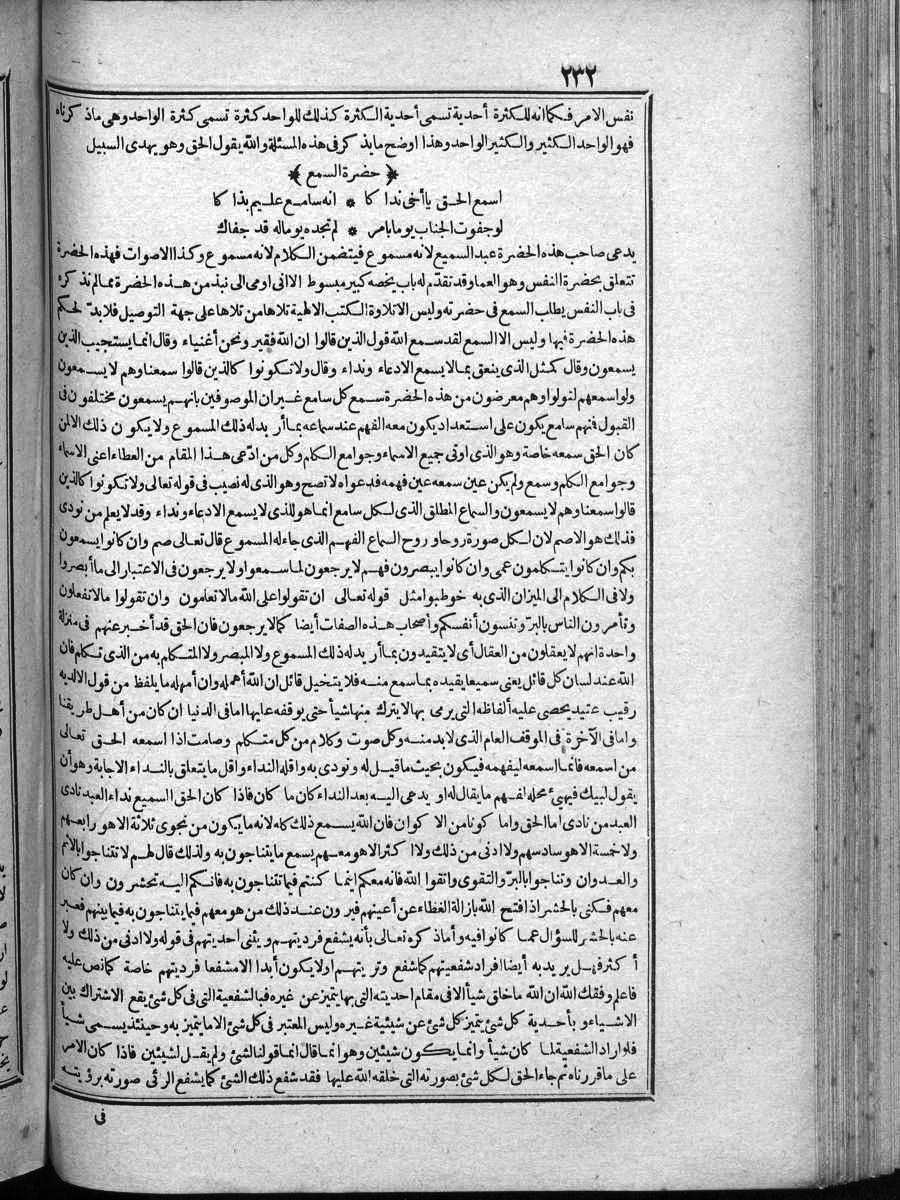 ٢٣٢
نفس الامر فكما انه للكثرة أحدية تسمى أحدية الكثرة كذلك للواحد كثرة تسمى كثرة الواحد وهى ماذكرناه
فهو الواحد الكثير والكثير الواحد وهذا اوضح ما يذكر فى هذه المسئلة والله يقول الحق وهو يهدى السبيل
﴿ حضرة السمع ﴾
اسمع الحق يا أخى نداكا * انه سامع عليم بذاكا
لو جفوت الجناب يوما بامر * لم تجده يوما له قد جفاك
يدعى صاحب هذه الحضرة عبد السميع لانه مسموع فيتضمن الكلام لانه مسموع وكذا الاصوات فهذه الحضرة
تتعلق بحضرة النفس وهو العما وقد تقدّم له باب يخصه كبير مبسوط الا انى اومى الى نبذ من هذه الحضرة مما لم نذكره
فى باب النفس يطلب السمع فى حضرته وليس الا تلاوة الكتب الالهية تلاها من تلاها على جهة التوصيل فلا بدّ لحكم
هذه الحضرة فيها وليس الا السمع لقد سمع الله قول الذين قالوا ان الله فقير ونحن أغنياء وقال انما يستجيب الذين
يسمعون وقال كمثل الذى ينعق بما لا يسمع الا دعاء ونداء وقال ولا تكونوا كالذين قالوا سمعنا وهم لا يسمعون
ولو اسمعهم لتولوا وهم معرضون من هذه الحضرة سمع كل سامع غير ان الموصوفين بانهم يسمعون مختلفون فى
القبول فمنهم سامع يكون على استعداد يكون معه الفهم عند سماعه بما أريد له ذلك المسموع ولا يكون ذلك الا لمن
كان الحق سمعه خاصة وهو الذى اوتى جميع الاسماء وجوامع الكلم وكل من ادّعى هذا المقام من العطاء اعنى الاسماء
وجوامع الكلم وسمع ولم يكن عين سمعه عين فهمه فدعواه لا تصح وهو الذى له نصيب فى قوله تعالى ولا تكونوا كالذين
قالوا سمعنا وهم لا يسمعون والسماع المطلق الذى لكل سامع انما هو للذى لا يسمع الا دعاء ونداء وقد لا يعلم من نودى
فذلك هو الاصم لان لكل صورة روحا وروح السماع الفهم الذى جاء له المسموع قال تعالى صم وان كانوا يسمعون
بكم وان كانوا يتكلمون عمى وان كانوا يبصرون فهم لا يرجعون لما سمعوا ولا يرجعون فى الاعتبار الى ما أبصروا
ولا فى الكلام الى الميزان الذى به خوطبوا مثل قوله تعالى ان تقولوا على الله ما لا تعلمون وان تقولوا ما لا تفعلون
وتأمرون الناس بالبرّ وتنسون أنفسكم وأصحاب هذه الصفات أيضا كما لا يرجعون فان الحق قد أخبر عنهم فى منزلة
واحدة انهم لا يعقلون من العقال أى لا يتقيدون بما أريد له ذلك المسموع ولا المبصر ولا المتكلم به من الذى تكلم فان
الله عند لسان كل قائل يعنى سميعا يقيده بما سمع منه فلا يتخيل قائل ان الله أهمله وان أمهله ما يلفظ من قول الا لديه
رقيب عتيد يحصى عليه ألفاظه التى يرمى بها لا يترك منها شيأ حتى يوقفه عليها اما فى الدنيا ان كان من أهل طريقنا
واما فى الآخرة فى الموقف العام الذى لا بد منه وكل صوت وكلام من كل متكلم وصامت اذا اسمعه الحق تعالى
من اسمعه فانما اسمعه ليفهمه فيكون بحيث ما قيل له ونودى به واقله النداء واقل ما يتعلق بالنداء الاجابة وهو أن
يقول لبيك فيهيئ محله لفهم ما يقال له او يدعى اليه بعد النداء كان ما كان فاذا كان الحق السميع نداء العبد نادى
العبد من نادى اما الحق واما كونا من الاكوان فان الله يسمع ذلك كله لانه ما يكون من نجوى ثلاثة الا هو رابعهم
ولا خمسة الا هو سادسهم ولا ادنى من ذلك ولا اكثر الا هو معهم يسمع ما يتناجون به ولذلك قال لهم لا تتناجوا بالاثم
والعدوان وتناجوا بالبرّ والتقوى واتقوا الله فانه معكم اينما كنتم فيما تتناجون به فانكم اليه تحشرون وان كان
معهم فكنى بالحشر اذا فتح الله بازالة الغطاء عن أعينهم فيرون عند ذلك من هو معهم فيما يتناجون به فيما بينهم فعبر
عنه بالحشر للسؤال عما كانوا فيه وأما ذكره تعالى بأنه يشفع فرديتهم ويثنى احديتهم فى قوله ولا ادنى من ذلك ولا
أكثر فهل يريد به أيضا افراد شفعيتهم كما شفع وتريتهم او لا يكون أبدا الا مشفعا فرديتهم خاصة كما نص عليه
فاعلم وفقك الله ان الله ما خلق شيأ الا فى مقام احديته التى بها يتميز عن غيره فبالشفعية التى فى كل شئ يقع الاشتراك بين
الاشياء وبأحدية كل شئ يتميز كل شئ عن شيئية غيره وليس المعتبر فى كل شئ الا ما يتميز به وحينئذ يسمى شيأ
فلو اراد الشفعية لما كان شيأ وانما يكون شيئين وهو انما قال انما قولنا لشئ ولم يقل لشيئين فاذا كان الامر
على ما قررناه ثم جاء الحق لكل شئ بصورته التى خلقه الله عليها فقد شفع ذلك الشئ كما يشفع الرائى صورته برؤيته
فى